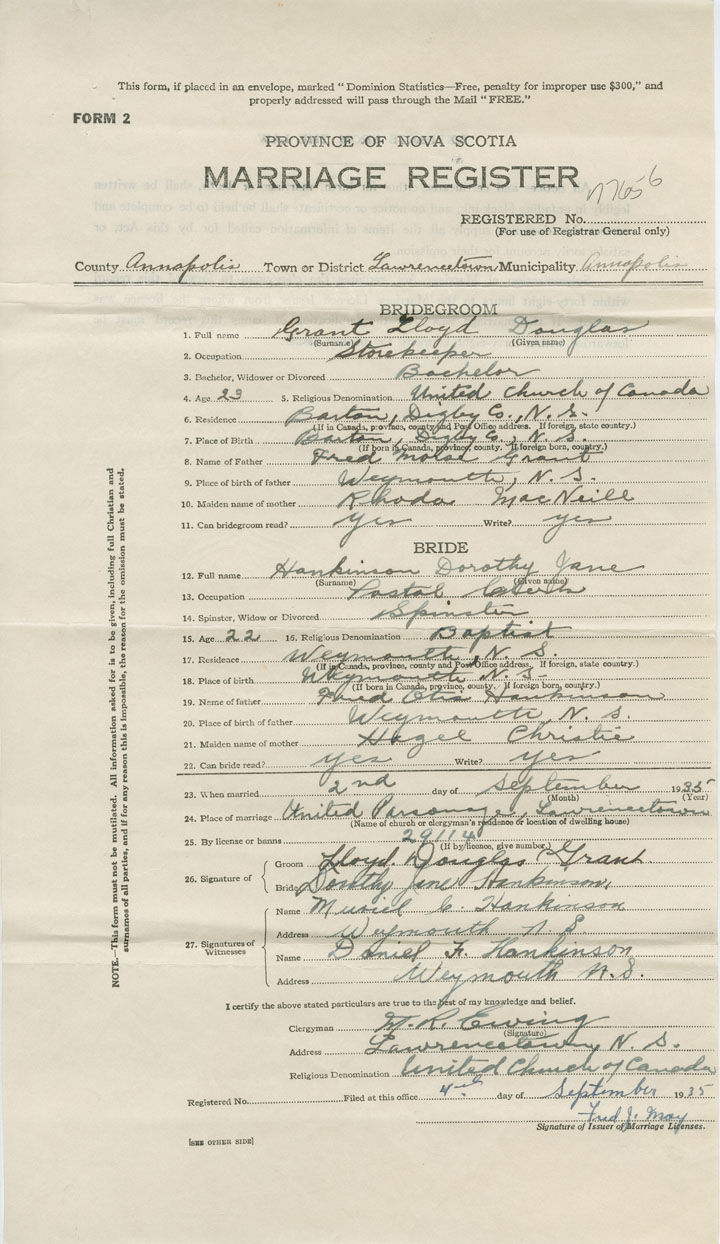 This form, if placed in an envelope, marked "Dominion Statistics—Free, penalty for improper use $300," and
properly addressed will pass through the Mail "FREE."
FORM 2
PROVINCE OF NOVA SCOTIA
MARRIAGE REGISTER
REGISTERED No. 7656
(For use of Registrar General only)
County Annapolis Town or District Lawrencetown Municipality Annapolis
BRIDEGROOM
1. Full name Grant Lloyd Douglas
(Surname) (Given name)
2. Occupation Storekeeper
3. Bachelor, Widower or Divorced Bachelor
4. Age 23 5. Religious Denomination United Church of Canada
6. Residence Barton, Digby Co., N.S.
(If in Canada, province, county and Post Office address. If foreign, state country.)
7. Place of Birth Barton, Digby Co., N.S.
(If born in Canada, province, county. If foreign born, country.)
8. Name of Father Fred Grant
9. Place of birth of father Weymouth, N.S.
10. Maiden name of mother Rhoda MacNeill
11. Can bridegroom read? yes Write? yes
BRIDE
12. Full name Hankinson Dorothy Jane
(Surname) (Given name)
13. Occupation Postal Clerk
14. Spinster, Widow or Divorced Spinster
15. Age 22 16. Religious Denomination Baptist
17. Residence Weymouth, N.S.
(If in Canada, province, county and Post Office address. If foreign, state country.)
18. Place of birth Weymouth N.S.
(If born in Canada, province, county. If foreign born, country.)
19. Name of father Otis Hankinson
20. Place of birth of father Weymouth, N.S.
21. Maiden name of mother Hazel Christie
22. Can bride read? yes Write? yes
23. When married 2nd day of September 1935
(Month) (Year)
24. Place of marriage United Parsonage, Lawrencetown
(Name of church or clergyman's residence or location of dwelling house)
25. By license or banns 29114
(If by licence, give number)
26. Signature of
Groom Lloyd Douglas Grant
Bride Dorothy Jane Hankinson
27. Signatures of Witnesses
Name Muriel C. Hankinson
Address Weymouth N S
Name Daniel F. Hankinson
Address Weymouth N.S.
I certify the above stated particulars are true to the best of my knowledge and belief.
Clergyman Ewing
(Signature)
Address Lawrencetown, N.S.
Religious Denomination United Church of Canada
Registered No. Filed at this office 4th day of September 1935
Fred J. May
Signature of Issuer of Marriage Licenses.
[SEE OTHER SIDE]
NOTE.—This form must not be mutilated. All information asked for is to be given, including full Christian and
surnames of all parties, and if for any reason this is impossible, the reason for the omission must be stated.